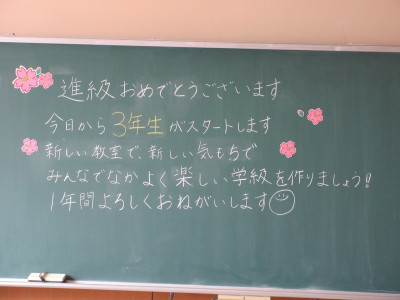 進級おめでとうございます
今日から3年生がスタートします
新しい教室で、新しい気もちで
みんなでなかよく楽しい学級を作りましょう!!
1年間よろしくおねがいします